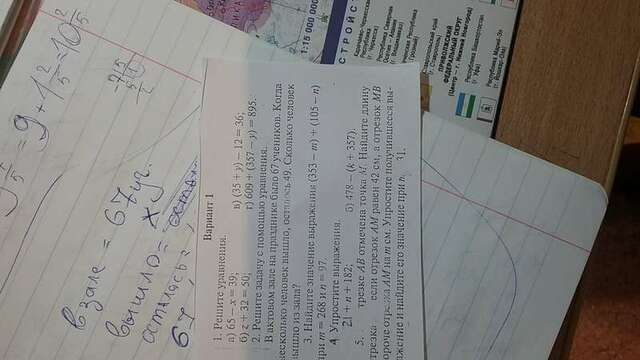 = 9 + 1 2/5 = 10 2/5
в зале = 67 уч.
вышло = x
осталась =
67
Вариант 1
1. Решите уравнения.
а) 65 – x = 39; в) (35 + y) – 12 = 36;
б) z + 32 = 50; г) 609 + (357 – y) = 895.
2. Решите задачу с помощью уравнения.
В актовом зале на празднике было 67 учеников. Когда
несколько человек вышло, осталось 49. Сколько человек
вышло из зала?
3. Найдите значение выражения (353 – m) + (105 – n)
при m = 268 и n = 97.
4 Упростите выражения.
21 + n + 182; б) 478 – (k + 357).
5. трезке AB отмечена точка M. Найдите длину
трезка если отрезок AM равен 42 см, а отрезок MB
короче отрезка AM на m см. Упростите получившееся вы-
ажение и найдите его значение при 31.
1:15 000 000
СТРОЙСТ
Карачаево-Черкесская
(г. Черкесск)
Республика Северная
Осетия – Алания
(г. Владикавказ)
Республика
Грозный)
Ставропольский край
(г. Ставрополь)
ПРИВОЛЖСКИЙ
ФЕДЕРАЛЬНЫЙ ОКРУГ
(Центр – г. Нижний Новгород)
Республика Башкортостан
(г. Уфа)
Республика Марий-Эл
(г. Йошкар-Ола)